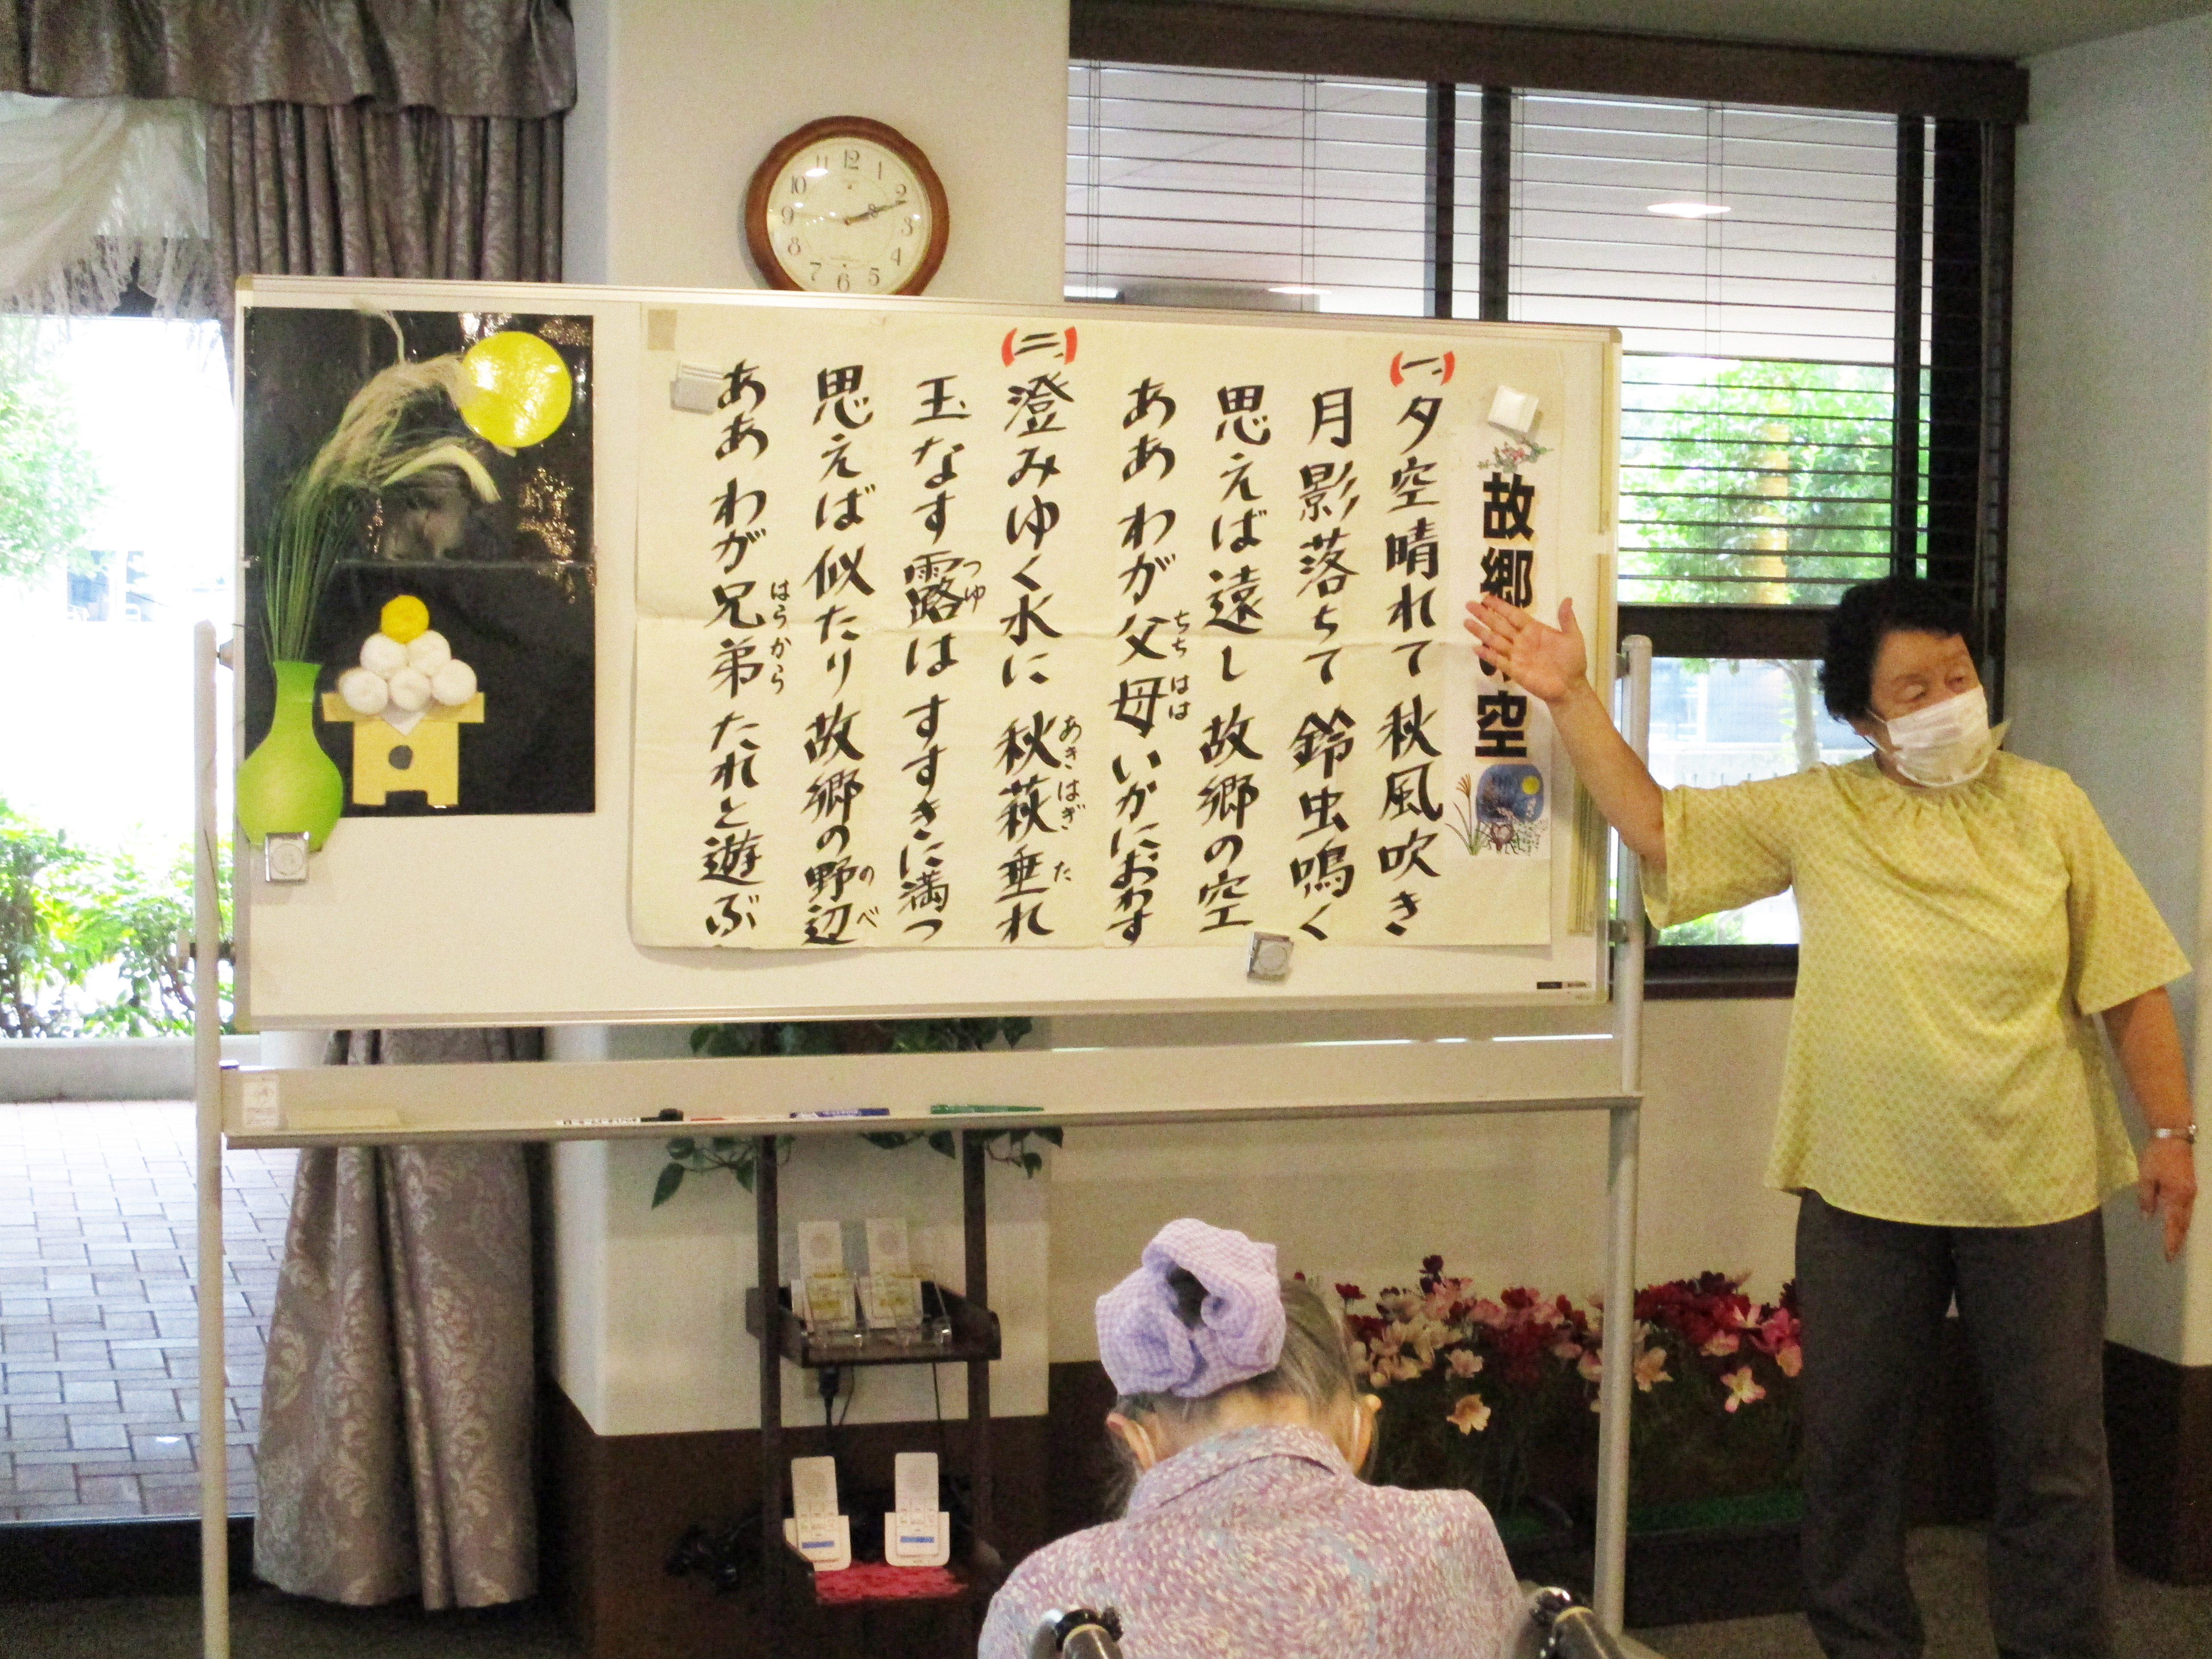 故郷の空
(一、)夕空晴れて 秋風吹き
月影落ちて 鈴虫鳴く
思えば遠し 故郷の空
ああ わが父母いかにおわす
ちち はは
(二、)澄みゆく水に 秋萩垂れ
あきはぎ た
玉なす露は すすきに満つ
つゆ
思えば似たり 故郷の野辺
のべ
ああ わが兄弟 たれと遊ぶ
はらから
12
1
2
3
4
5
6
7
8
9
10
11